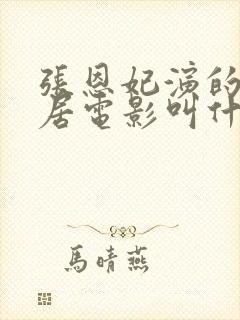 張恩妃演的
居電影叫什
馬晴燕